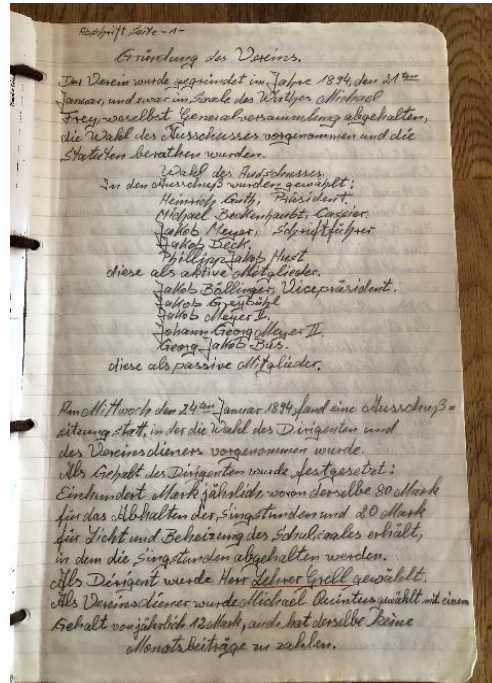 Abschrift Seite -1-
Gründung des Vereins.
Der Verein wurde gegründet im Jahre 1894, den 21ten
Januar, und zwar im Saale des Wirthes Michael
Frey, woselbst Generalversammlung abgehalten,
die Wahl des Ausschusses vorgenommen und die
Statuten berathen wurden.
Wahl des Ausschusses.
In den Ausschuß wurden gewählt:
Heinrich Guth, Präsident.
Michael Beckenhaubt, Cassier.
Jakob Meyer, Schriftführer
Jakob Beck.
Philipp Jakob Hust
diese als aktive Mitglieder.
Jakob Böllinger, Vicepräsident.
Jakob Greybühl
Jakob Meyer II.
Johann Georg Meyer II.
Georg Jakob Bus.
diese als passive Mitglieder.
Am Mittwoch den 24ten Januar 1894, fand eine Ausschuß=
sitzung statt, in der die Wahl des Dirigenten und
des Vereinsdieners vorgenommen wurde.
Als Gehalt des Dirigenten wurde festgesetzt:
Einhundert Mark jährlich, wovon derselbe 80 Mark
für das Abhalten der Singstunden und 20 Mark
für Licht und Beheizung des Schulsaales erhält,
in dem die Singstunden abgehalten werden.
Als Dirigent wurde Herr Lehrer Grell gewählt.
Als Vereinsdiener wurde Michael Quintus gewählt mit einem
Gehalt von jährlich 12 Mark, auch hat derselbe keine
Monatsbeiträge zu zahlen.